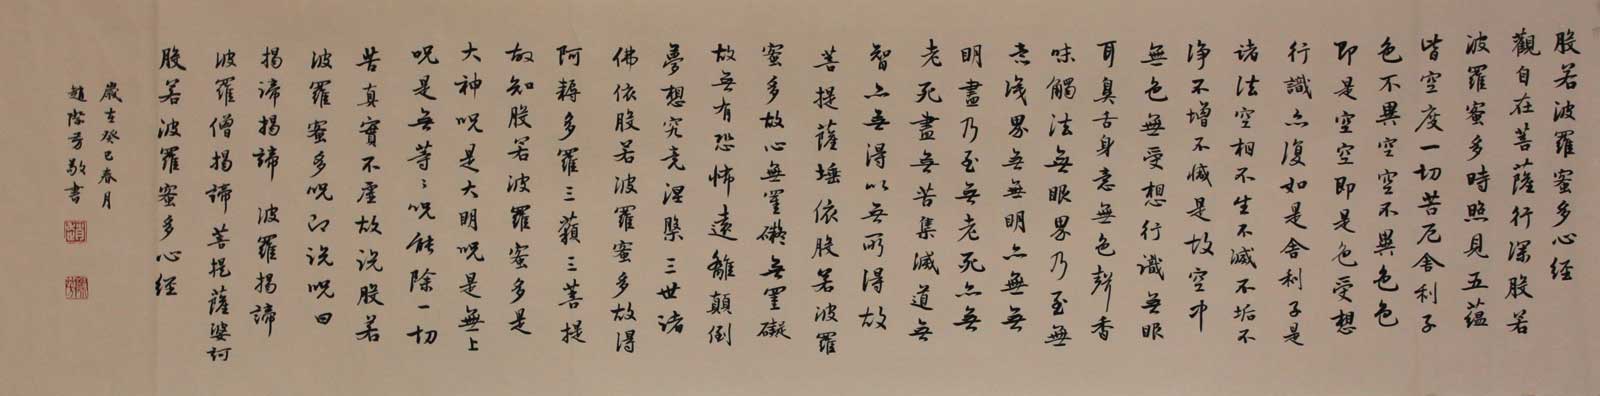 般若波羅蜜多心經
觀自在菩薩行深般若
波羅蜜多時照見五蘊
皆空度一切苦厄舍利子
色不異空空不異色色
即是空空即是色受想
行識亦復如是舍利子是
諸法空相不生不滅不垢不
淨不增不減是故空中
無色無受想行識無眼
耳鼻舌身意無色聲香
味觸法無眼界乃至無
意識界無無明亦無無
明盡乃至無老死亦無
老死盡無苦集滅道無
智亦無得以無所得故
菩提薩埵依般若波羅
蜜多故心無罣礙無罣礙
故無有恐怖遠離顛倒
夢想究竟涅槃三世諸
佛依般若波羅蜜多故得
阿耨多羅三藐三菩提
故知般若波羅蜜多是
大神咒是大明咒是無上
咒是無等々咒能除一切
苦真實不虛故說般若
波羅蜜多咒即說咒曰
揭諦揭諦 波羅揭諦
波羅僧揭諦 菩提薩婆訶
般若波羅蜜多心經
歲在癸巳春月
趙 芳敬書